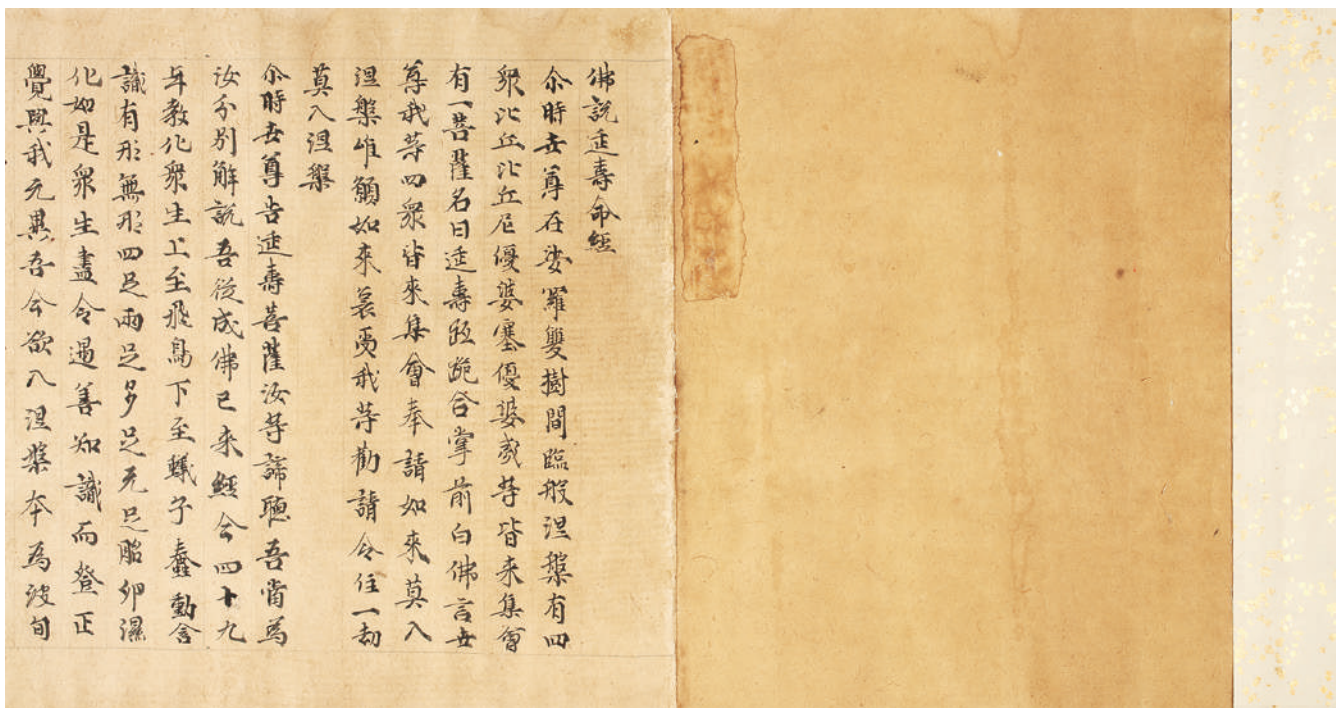 佛說延壽命經
尒時世尊在娑羅雙樹間臨般涅槃有四
衆比丘比丘尼優婆塞優婆夷等皆来集會
有一菩薩名曰延壽胡跪合掌前白佛言世
尊我等四衆皆來集會奉請如來莫入
涅槃唯願如來哀愍我等勸請令住一劫
莫入涅槃
尒時世尊告延壽菩薩汝等諦聽吾當爲
汝分別解說吾從成佛已来經今四十九
年教化衆生上至飛鳥下至蟻子蠢動含
識有形無形四足兩足多足无足胎卵濕
化如是衆生盡令遇善知識而登正
覺與我无異吾今欲入涅槃本爲波旬